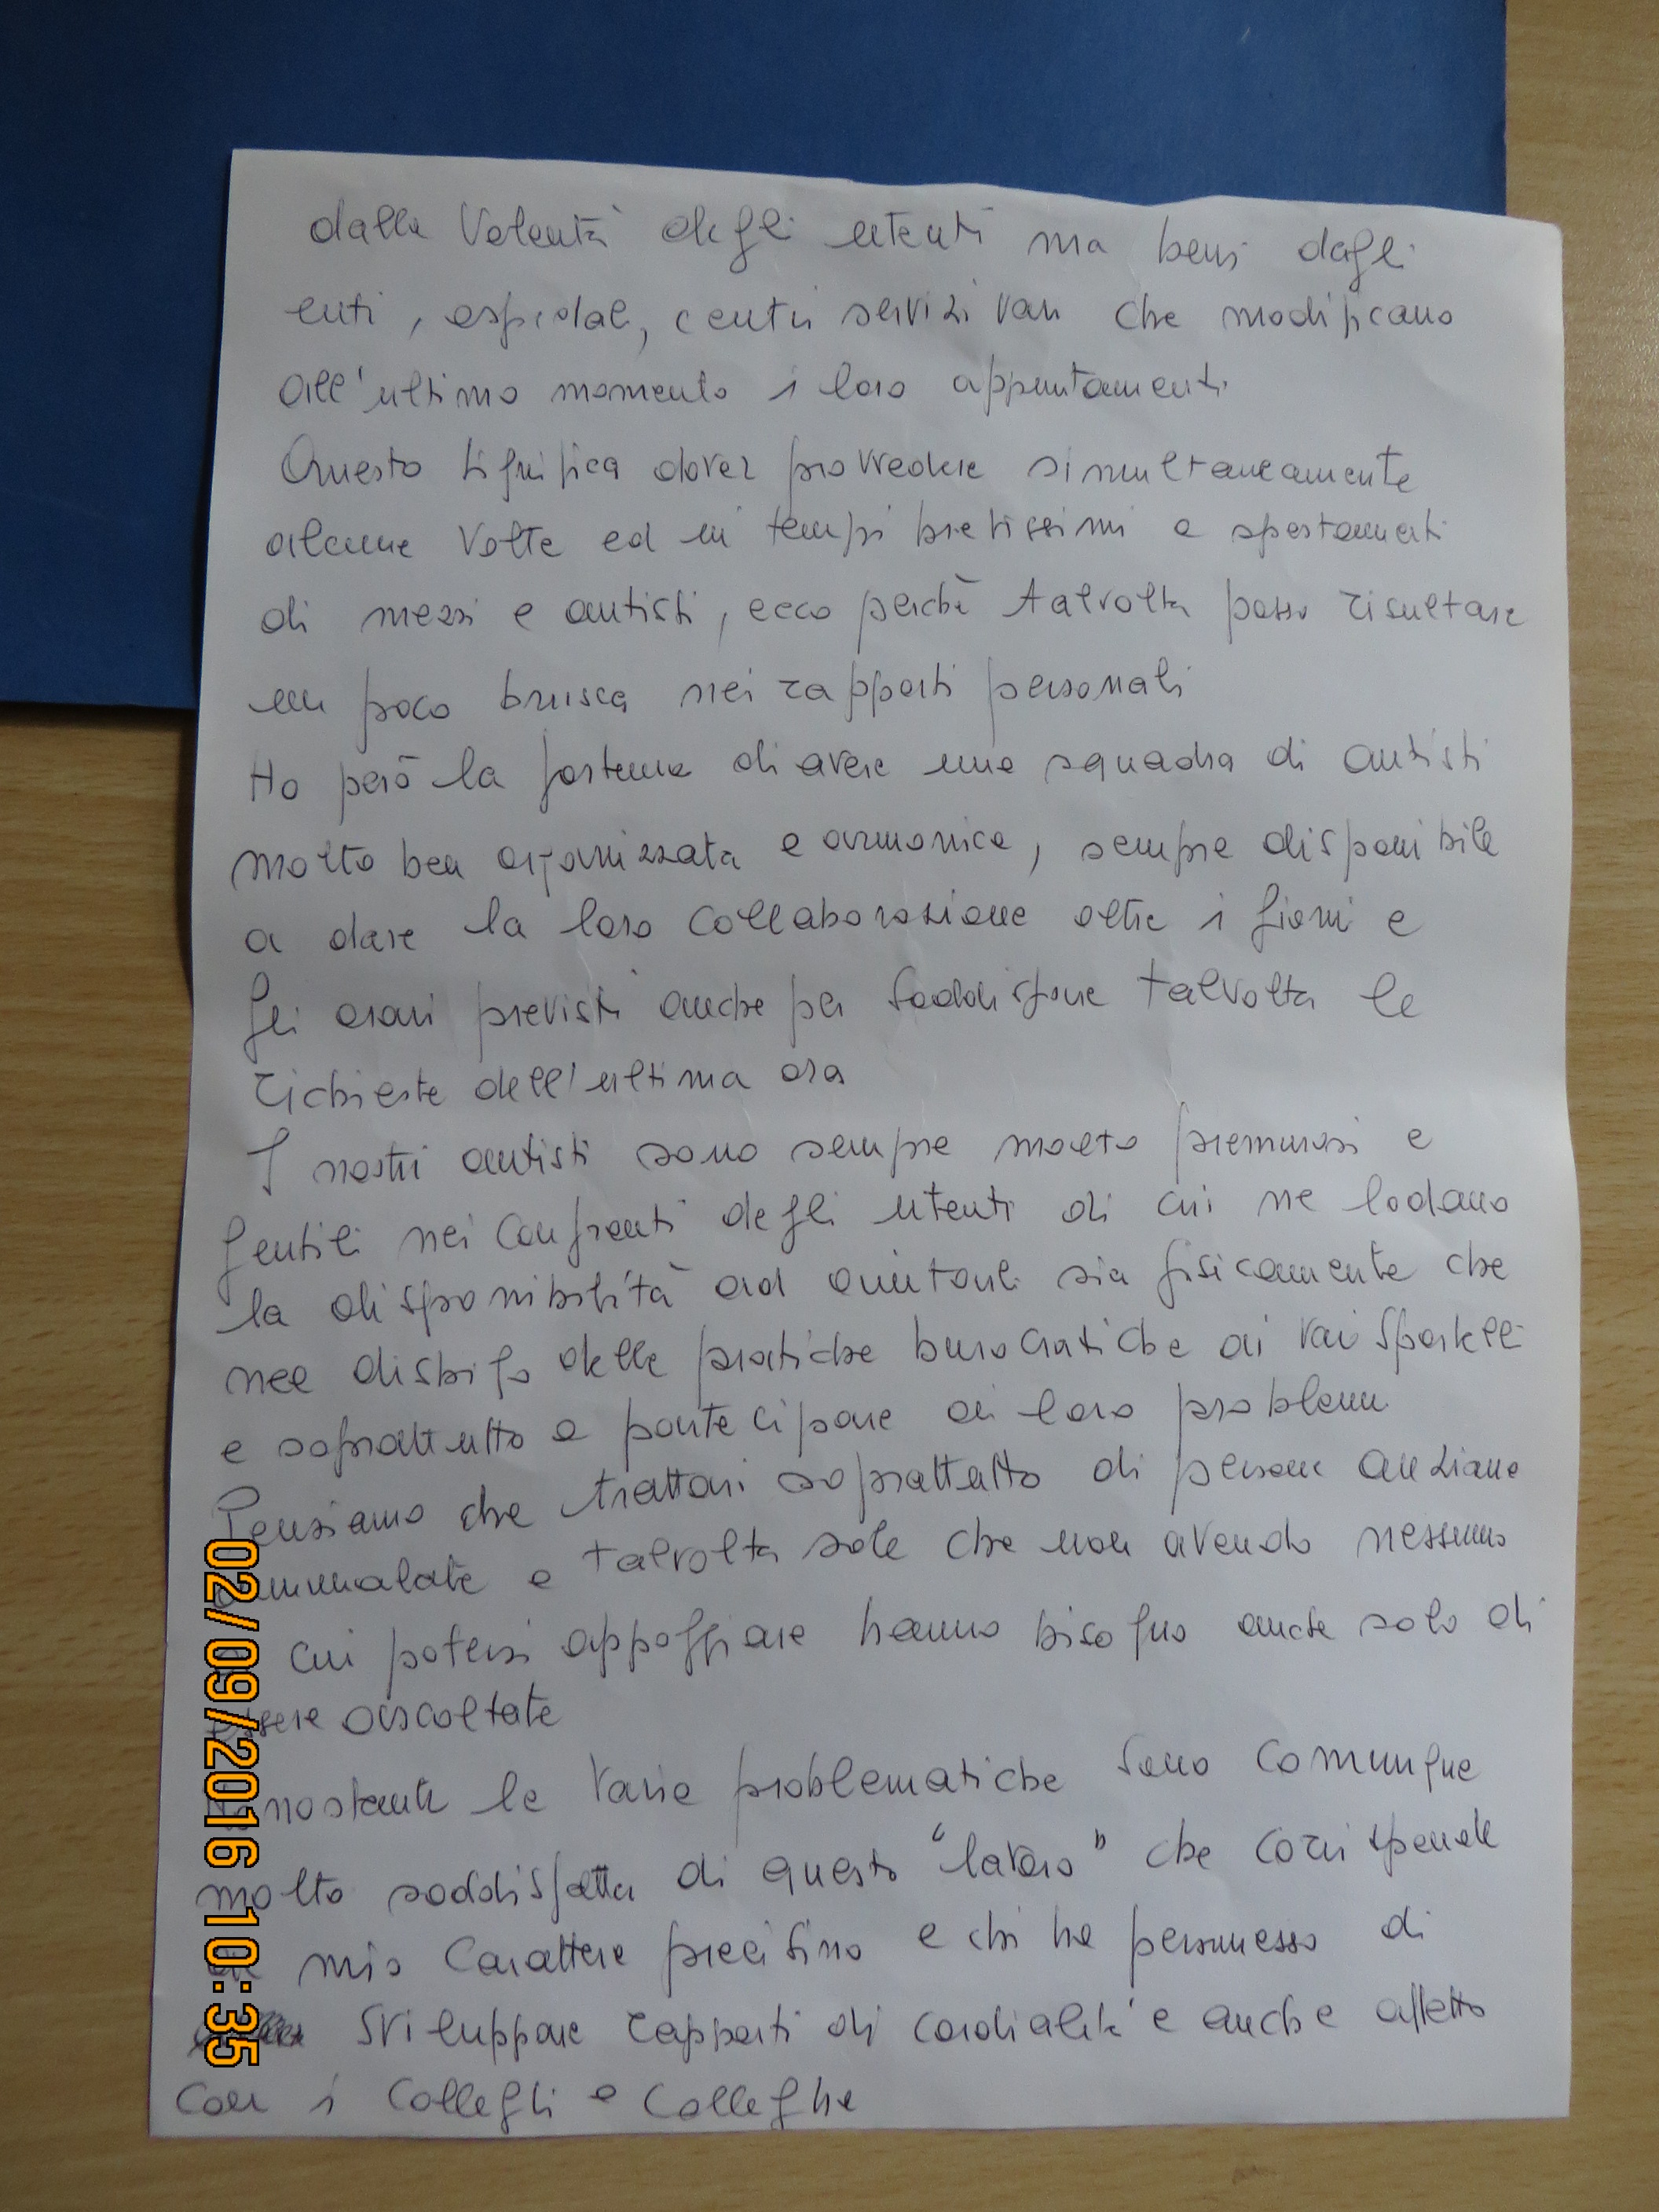 dalla Volontà degli utenti ma bensi dagli
enti, ospedali, centri servizi vari che modificano
all'ultimo momento i loro appuntamenti
Questo significa dover provvedere simultaneamente
alcune Volte ed in tempi bretissimi a spostamenti
di mezzi e autisti, ecco perchè talvolta posso risultare
un poco brusca nei rapporti personali
Ho però la fortuna di avere una squadra di autisti
molto ben organizzata e armonica, sempre disponibile
a dare la loro collaborazione oltre i giorni e
gli orari previsti anche per soddisfare talvolta le
richieste dell'ultima ora
I nostri autisti sono sempre molto premurosi e
gentili nei confronti degli utenti di cui ne lodano
la disponibilità ad aiutarli sia fisicamente che
nel disbrigo delle pratiche burocratiche ai vari sportelli
e soprattutto a partecipare ai loro problemi
Pensiamo che trattasi soprattutto di persone anziane
ammalate e talvolta sole che non avendo nessuno
cui potersi appoggiare hanno bisogno anche solo di
essere ascoltate
nostante le varie problematiche sono comunque
molto soddisfatta di questo "lavoro" che corrisponde
al mio Carattere precisino e chi ha permesso di
sviluppare rapporti di cordialità e anche affetto
con i Collegli e Colleghe
02/09/2016 10:35